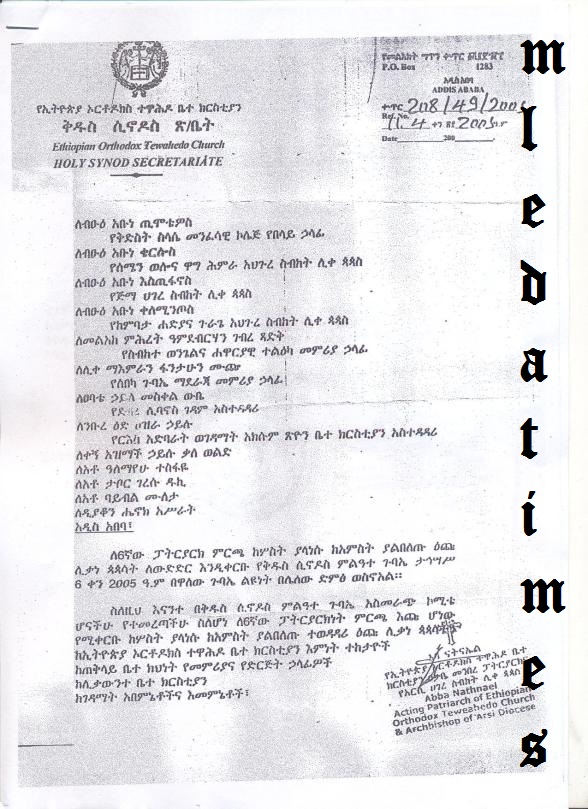 የመልእክት ሣጥን ቁጥር
P.O. Box 1283
አዲስ አበባ
ADDIS ABABA
ቁጥር 208/49/2005
Ref. No.
Date 200
የኢትዮጵያ ኦርቶዶክስ ተዋሕዶ ቤተ ክርስቲያን
ቅዱስ ሲኖዶስ ጽ/ቤት
Ethiopian Orthodox Tewahedo Church
HOLY SYNOD SECRETARIATE
ለብፁዕ አቡነ ጢሞቴዎስ
የቅድስት ስላሴ መንፈሳዊ ኮሌጅ የበላይ ኃላፊ
ለብፁዕ አቡነ ቄርሎስ
የሰሜን ወሎና ዋግ ሕምራ አህጉረ ስብከት ሊቀ ጳጳስ
ለብፁዕ አቡነ እስጢፋኖስ
የጅማ ሀገረ ስብከት ሊቀ ጳጳስ
ለብፁዕ አቡነ ቀለሚንጦስ
የከምባታ ሐድያና ጉራጌ አህጉረ ስብከት ሊቀ ጳጳስ
ለመልአከ ምሕረት ዓምደብርሃን ገብረ ጻድቅ
የስብከተ ወንጌልና ሐዋርያዊ ተልዕኮ መምሪያ ኃላፊ
ለሊቀ ማእምራን ፋንታሁን ሙጬ
የሰበካ ጉባኤ ማደራጃ መምሪያ ኃላፊ
ለፀባቴ ኃይለ መስቀል ውቤ
ሊባኖስ ገዳም አስተዳዳሪ
ለንቡረ ዕድ ኃይሉ
የርእሰ አድባራት ወገዳማት አክሱም ጽዮን ቤተ ክርስቲያን አስተዳዳሪ
ለቀኝ አዝማች ኃይሉ ቃለ ወልድ
ለአቶ ዓለማየሁ ተስፋዬ
ለአቶ ታቦር ገረሱ ዱኪ
ለአቶ ባይብል ሙላታ
ለዲያቆን ሔኖክ አሥራት
አዲስ አበባ፣
ለ6ኛው ፓትርያርክ ምርጫ ከሦስት ያላነሱ ከአምስት ያልበለጡ ዕጩ
ሊቃነ ጳጳሳት ለውድድር እንዲቀርቡ የቅዱስ ሲኖዶስ ምልዓተ ጉባኤ ታኅሣሥ
6 ቀን 2005 ዓ.ም በዋለው ጉባኤ ልዩነት በሌለው ድምፅ ወስኖአል።
ስለዚህ እናንተ በቅዱስ ሲኖዶስ ምልዓተ ጉባኤ አስመራጭ ኮሚቴ
ሆናችሁ የተመረጣችሁ ስለሆነ ለ6ኛው ፓትርያርክነት ምርጫ እጩ ሆነው
የሚቀርቡ ከሦስት ያላነሱ ከአምስት ያልበለጡ ተወዳዳሪ ዕጩ ሊቃነ ጳጳሳት
ከኢትዮጵያ ኦርቶዶክስ ተዋሕዶ ቤተ ክርስቲያን እምነት ተከታዮች
ከጠቅላይ ቤተ ክህነት የመምሪያና የድርጅት ኃላፊዎች
ከሊቃውንተ ቤተ ክርስቲያን
ከገዳማት አበምኔቶችና እመምኔቶች፣
Abba Nathnael
Acting Patriarch of Ethiopian
Orthodox Teweahedo Church
& Archbishop of Arsi Diocese
mledatimes